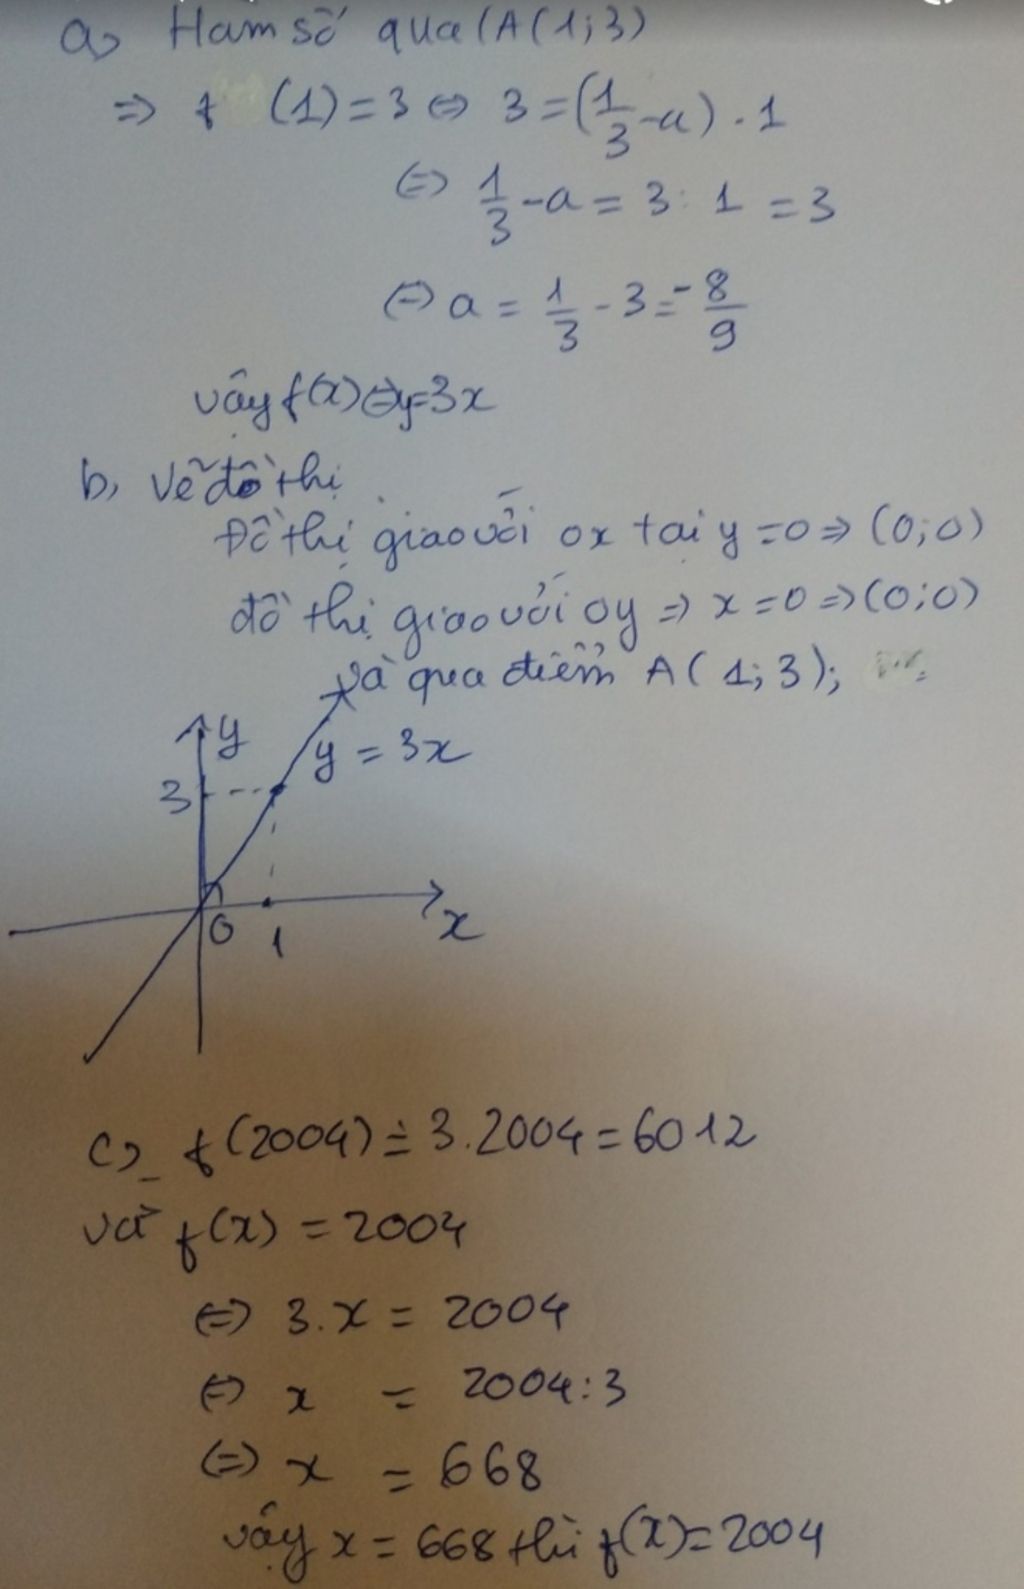 a, Hàm số qua (A(1;3)
=> f (1) = 3 <=> 3 = (1/3 - a) . 1
<=> 1/3 - a = 3 : 1 = 3
<=> a = 1/3 - 3 = -8/9
vậy f(x) <=> y = 3x
b, Vẽ đồ thị
Đồ thị giao với ox tại y = 0 => (0;0)
đồ thị giao với oy => x = 0 => (0;0)
và qua điểm A(1;3);
y
y = 3x
3
0
1
x
c, f(2004) = 3.2004 = 6012
và f(x) = 2004
<=> 3.x = 2004
<=> x = 2004:3
<=> x = 668
vậy x = 668 thì f(x) = 2004